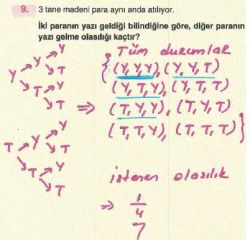 9. 3 tane madeni para aynı anda atılıyor.
İki paranın yazı geldiği bilindiğine göre, diğer paranın
yazı gelme olasılığı kaçtır?
Tüm durumlar
(Y,Y,Y), (Y,Y,T)
(Y,T,Y), (Y,T,T)
(T,Y,Y), (T,Y,T)
(T,T,Y), (T,T,T)
Y
Y T
Y
T T
⇒
Y
Y T
T
Y
T T
istenen olasılık
⇒ 1
4